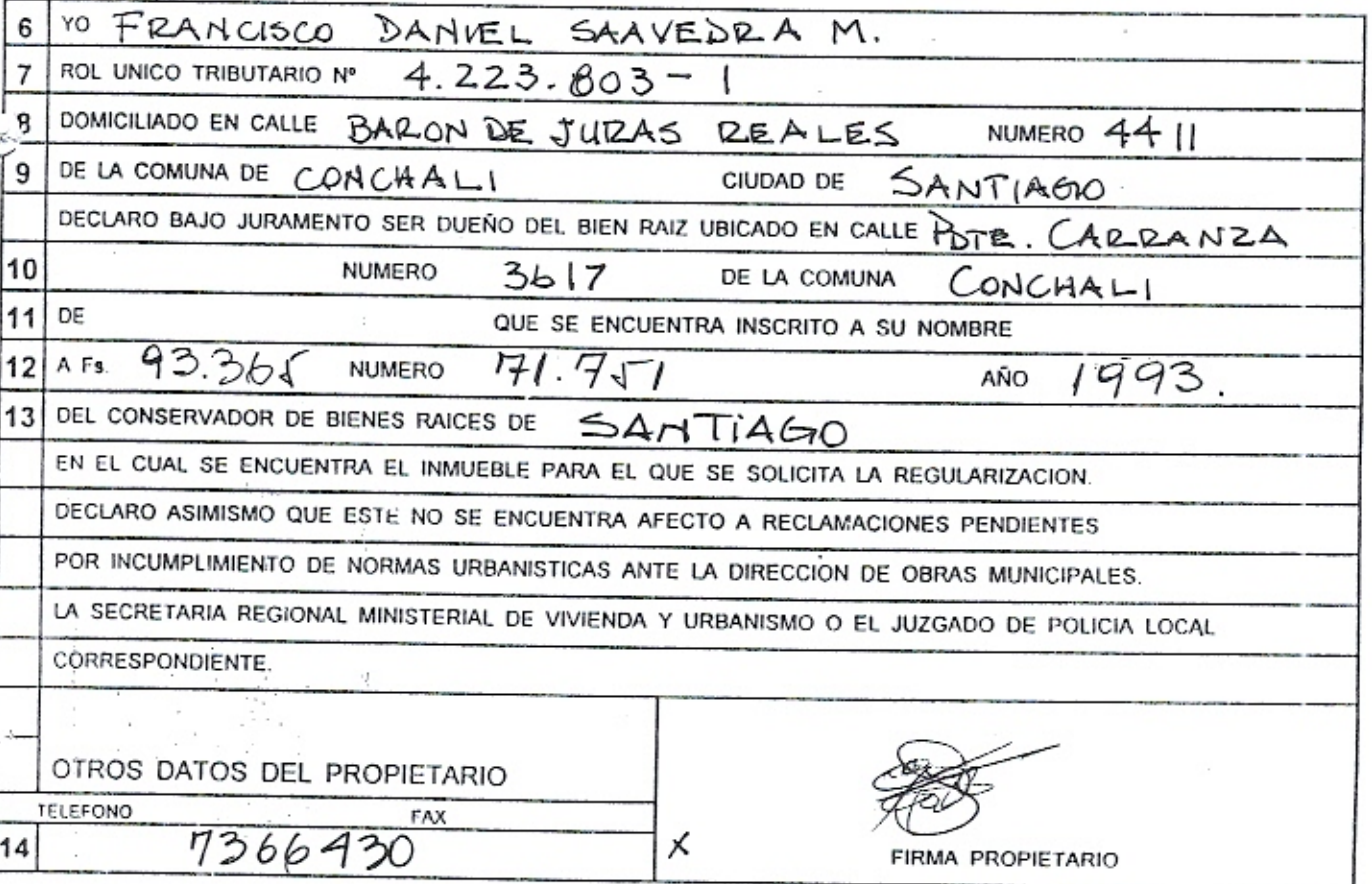 6 YO FRANCISCO DANIEL SAAVEDRA M.
7 ROL UNICO TRIBUTARIO Nº 4.223.803-1
8 DOMICILIADO EN CALLE BARON DE JURAS REALES NUMERO 4411
9 DE LA COMUNA DE CONCHALI CIUDAD DE SANTIAGO
DECLARO BAJO JURAMENTO SER DUEÑO DEL BIEN RAIZ UBICADO EN CALLE PDTE. CARRANZA
10 NUMERO 3617 DE LA COMUNA CONCHALI
11 DE QUE SE ENCUENTRA INSCRITO A SU NOMBRE
12 A Fs. 93.365 NUMERO 71.751 AÑO 1993.
13 DEL CONSERVADOR DE BIENES RAICES DE SANTIAGO
EN EL CUAL SE ENCUENTRA EL INMUEBLE PARA EL QUE SE SOLICITA LA REGULARIZACION.
DECLARO ASIMISMO QUE ESTE NO SE ENCUENTRA AFECTO A RECLAMACIONES PENDIENTES
POR INCUMPLIMIENTO DE NORMAS URBANISTICAS ANTE LA DIRECCION DE OBRAS MUNICIPALES.
LA SECRETARIA REGIONAL MINISTERIAL DE VIVIENDA Y URBANISMO O EL JUZGADO DE POLICIA LOCAL
CORRESPONDIENTE.
OTROS DATOS DEL PROPIETARIO
TELEFONO FAX
14 7366430 X FIRMA PROPIETARIO